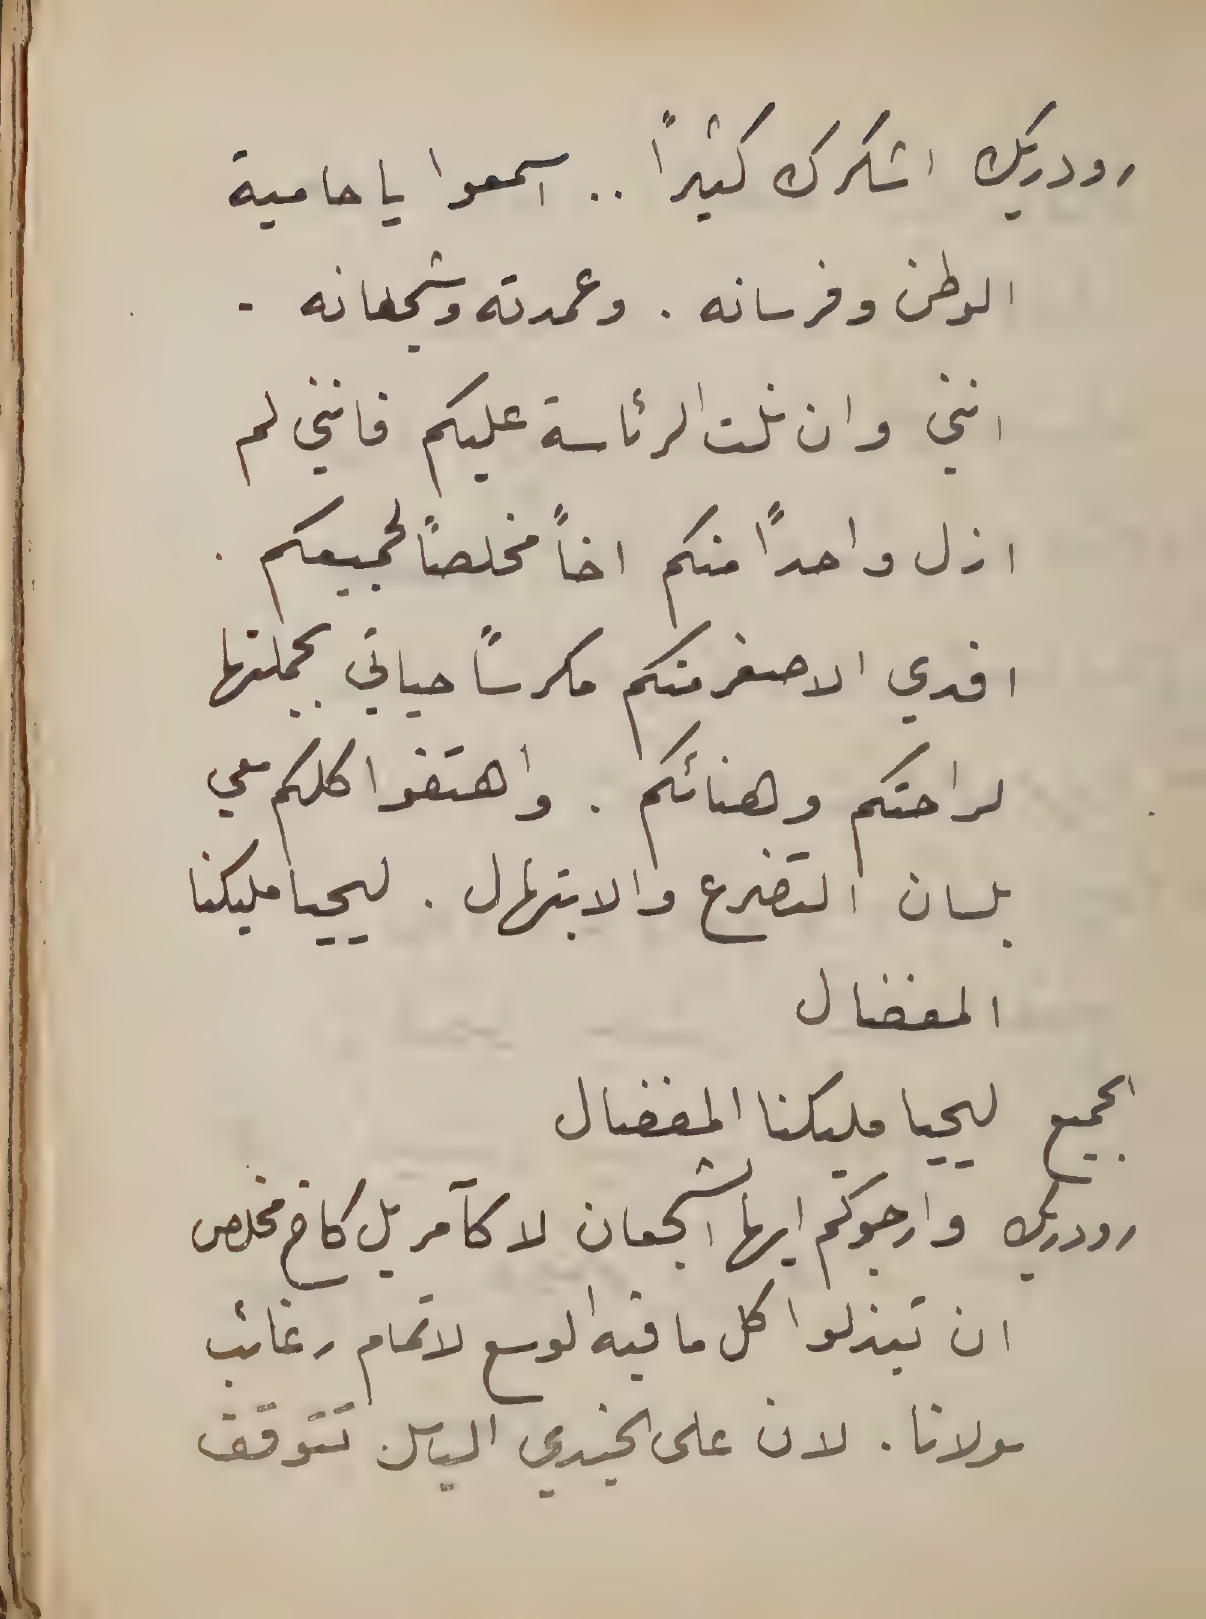 رودريك اشكرك كثيراً .. اسمعوا يا حامية
الوطن وفرسانه . وعمدته وشجعانه -
انني وان نلت الرئاسة عليكم فانني لم
ازل واحداً منكم اخاً مخلصاً لجميعكم .
افدي الاصغر منكم مكرساً حياتي بجملتها
لراحتكم وهنائكم . واهتفوا كلكم معي
بلسان التضرع والابتهال . ليحيا مليكنا
المفضال
الجميع ليحيا مليكنا المفضال
رودريك وارجوكم ايها الشجعان لا كآمر بل كاخ مخلص
ان تبذلوا كل ما فيه الوسع لاتمام رغائب
مولانا . لان على الجندي الباسل تتوقف